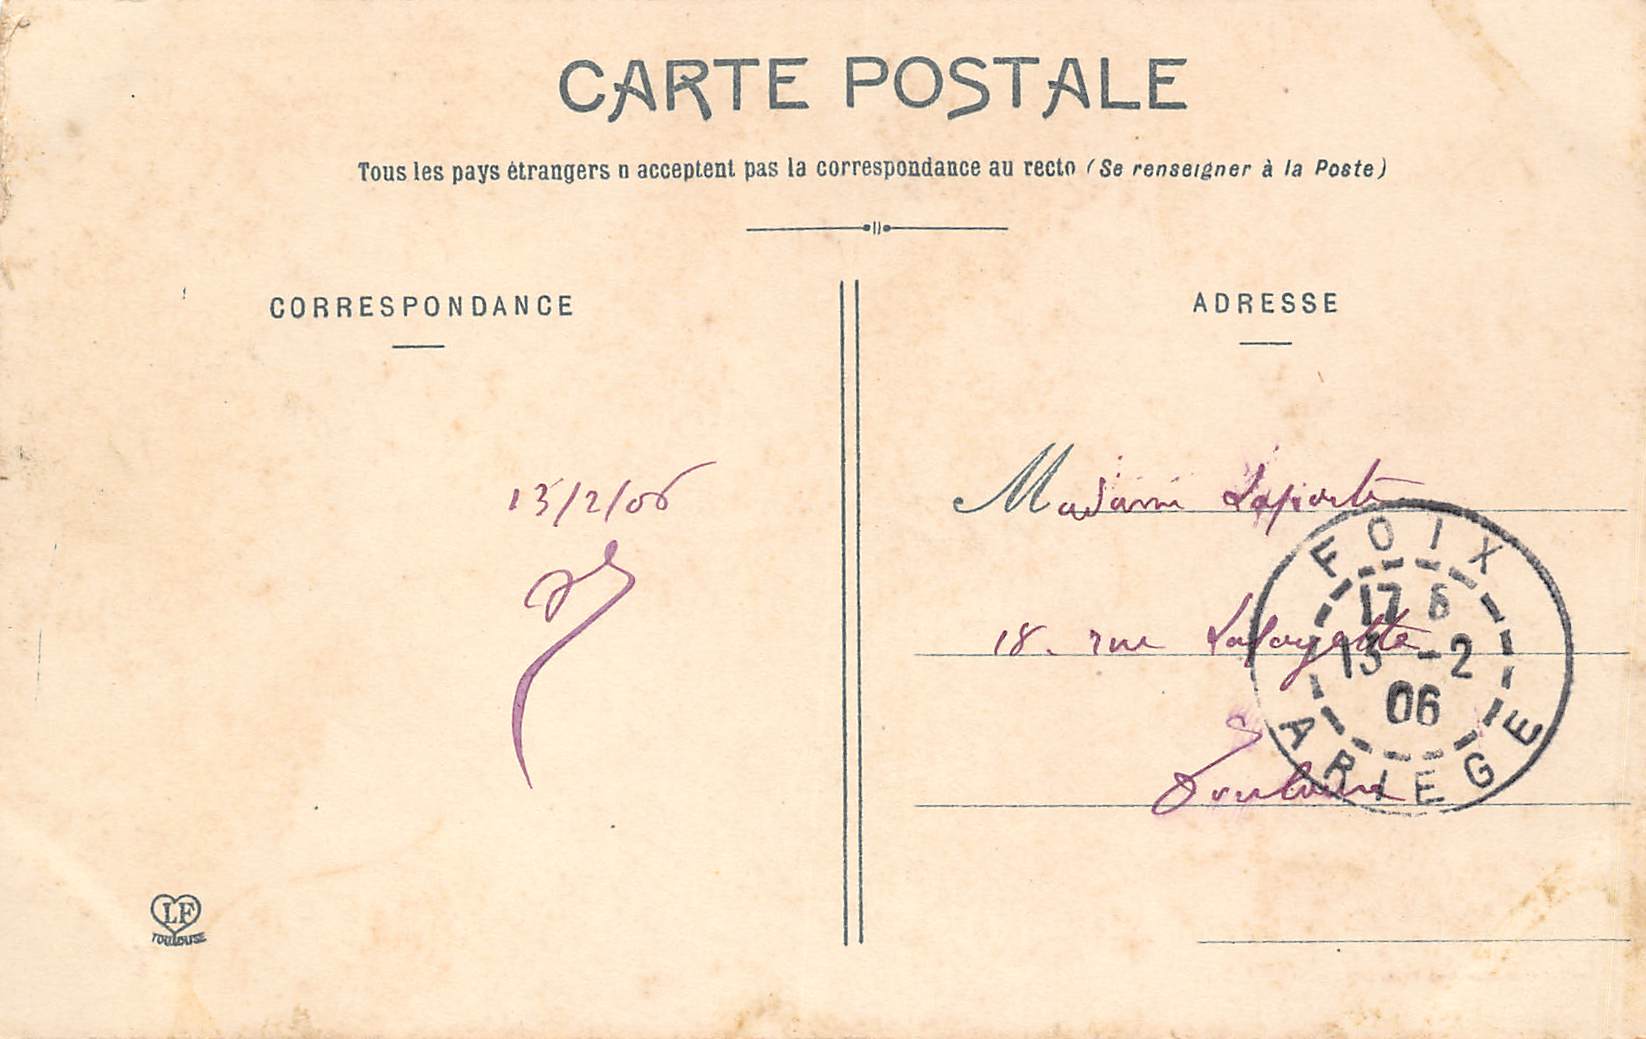 CARTE POSTALE
Tous les pays étrangers n acceptent pas la correspondance au recto (Se renseigner à la Poste)
CORRESPONDANCE
13/2/06
LF
TOULOUSE
ADRESSE
Madame Laporte
18. rue Lafayette
Toulouse
FOIX
17
13 -2
06
ARIEGE